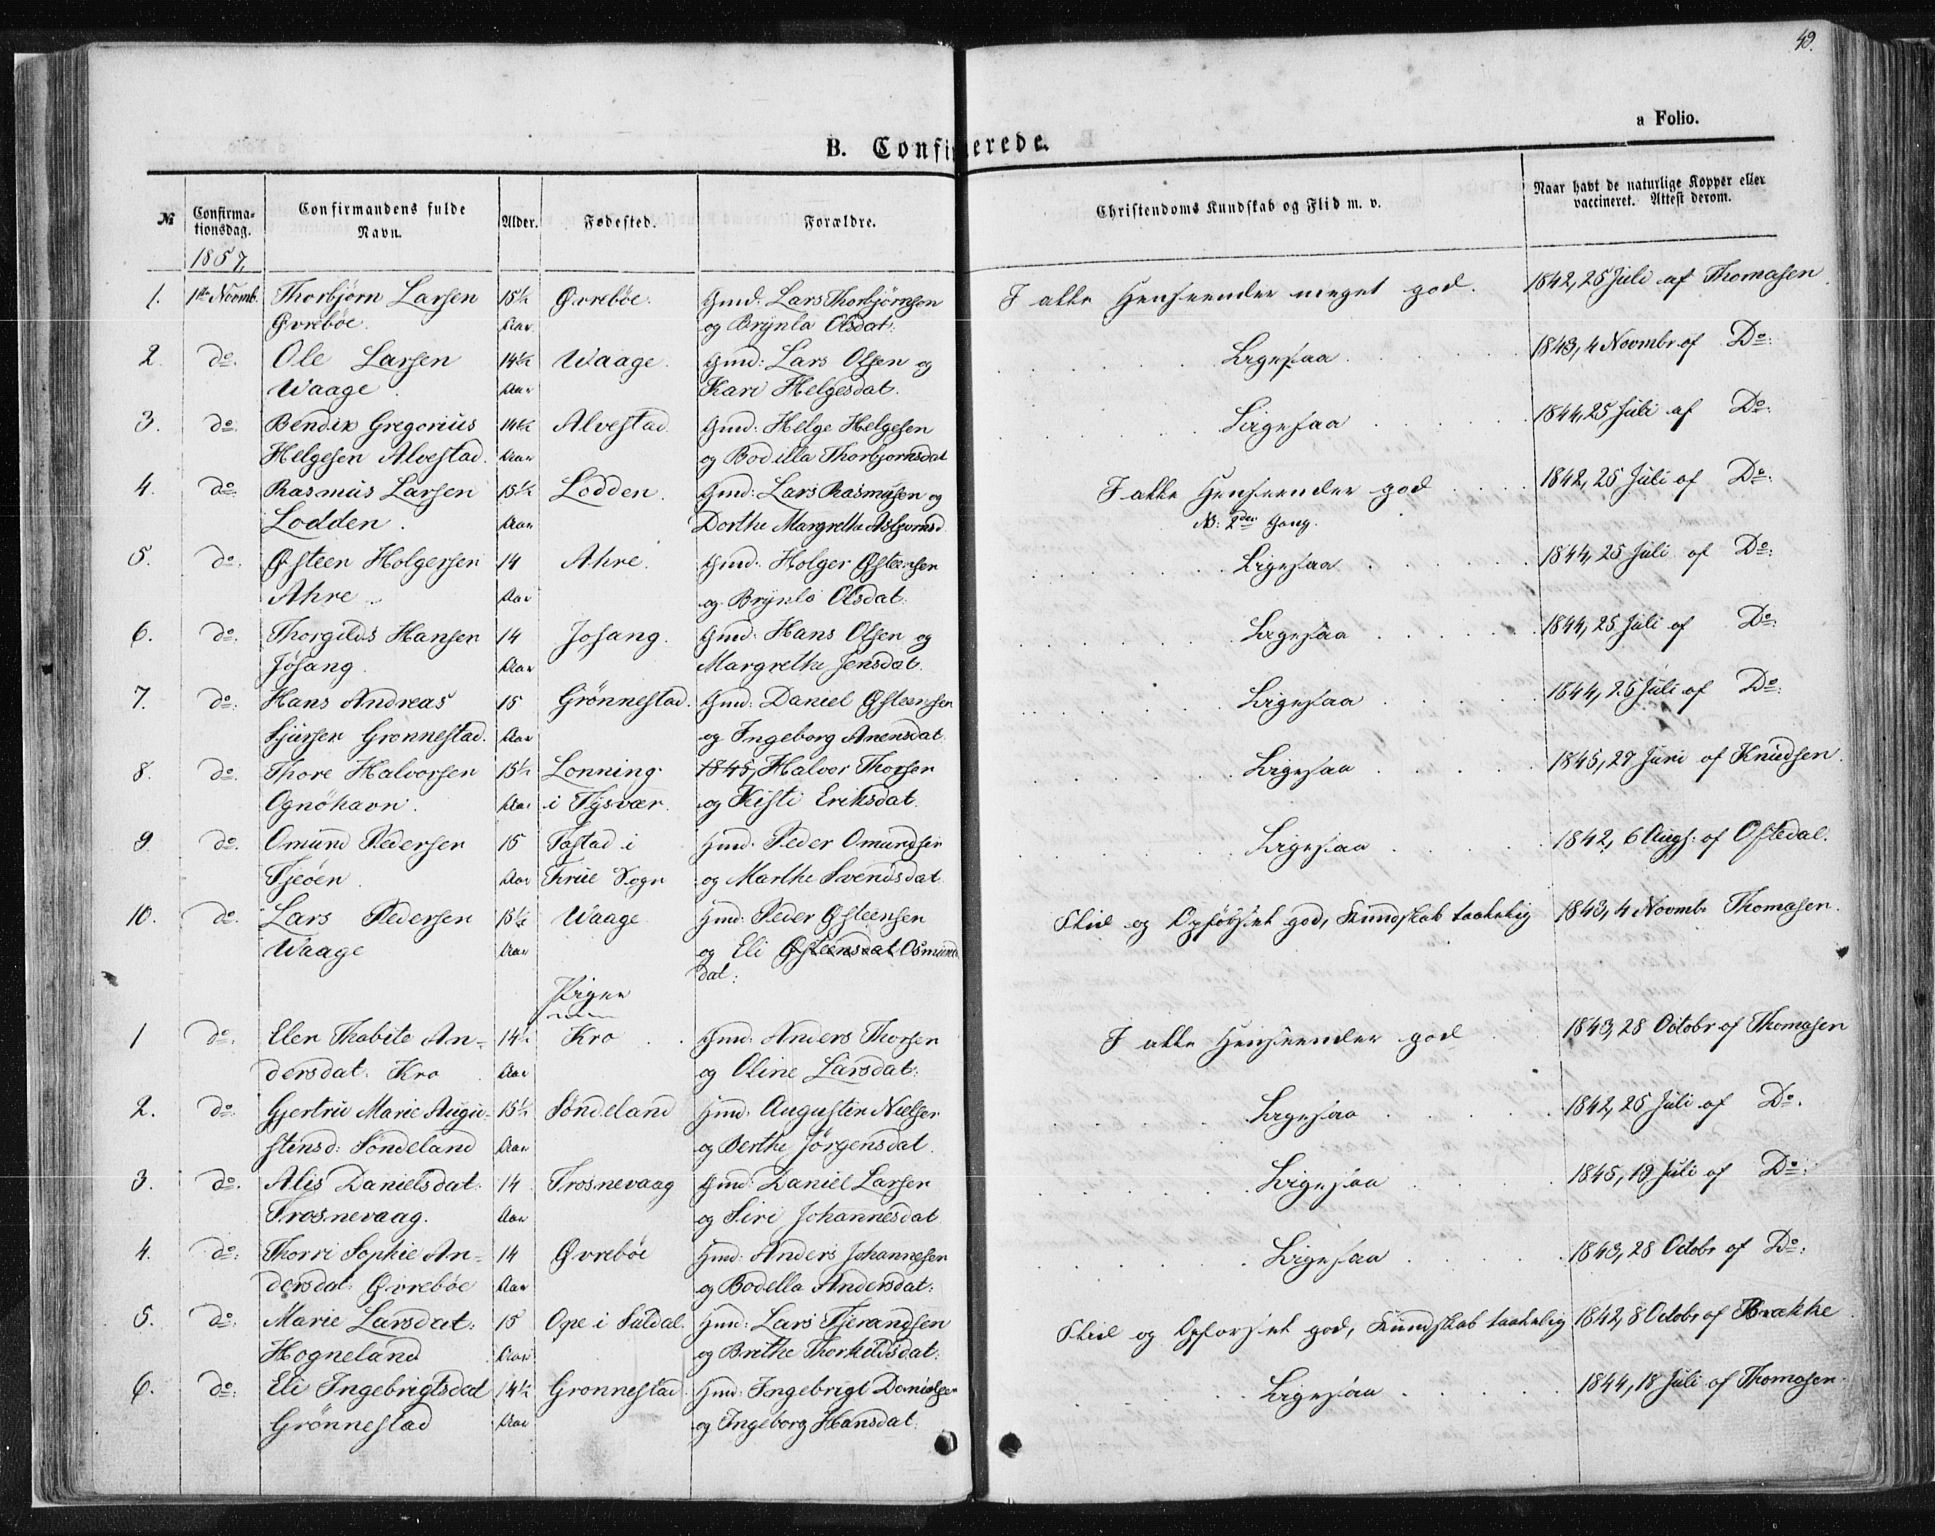 49.
a Folio.
B. Confirmerede.
№ Confirmationsdag. Confirmandens fulde Navn. Alder. Fødested. Forældre. Christendoms Kundskab og Flid m. v. Naar havt de naturlige Kopper eller vaccineret. Attest derom.
1857,
1. 1ste Novmb. Thorbjørn Larsen 15½ Øvrebøe. Gmd: Lars Thorbjørnsen I alle Henseender meget god. 1842, 25 Juli af Thomasen.
Øvrebøe. Aar og Brynla Olsdat:
2. do. Ole Larsen 14½ Waage. Gmd: Lars Olsen og Ligesaa 1843, 4 Novmbr af Do:
Waage. Aar Kari Helgesdat.
3. do. Bendix Gregorius 14½ Alvestad Gmd: Helge Helgesen Ligesaa 1844, 25 Juli af Do:
Helgesen Alvestad. Aar og Bodilla Thorbjornsdat
4. do. Rasmus Larsen 15½ Lodden. Gmd: Lars Rasmusen og I alle Henseender god 1842, 25 Juli af Do:
Lodden. Aar Dorthe Margrethe Asbjornsd. NB: 2den Gang.
5. do. Østeen Holgersen 14 Ahre. Gmd: Holger Østeensen Ligesaa 1844, 25 Juli af Do:
Ahre. Aar og Brynlo Olsdat.
6. do. Thorgilds Hansen 14 Josang. Gmd: Hans Olsen og Ligesaa 1844, 25 Juli af Do:
Jøsang. Aar Margrethe Jensdat.
7. do. Hans Andreas 15 Grönnestad. Gmd: Daniel Østeensen Ligesaa 1844, 25 Juli af Do:
Sjursen Gronnestad. Aar og Ingeborg Anensdat.
8. do. Thore Halvorsen 15½ Lonning 1845, Halvor Thorsen Ligesaa 1845, 27 Juni af Knudsen.
Ognöhavn. Aar i Tysvær. og Kisti Eriksdat.
9 do. Omund Pedersen 15 Tostad i Gmd: Peder Omundsen Ligesaa 1842, 6 Augs: af Oftedal.
Fjeöen. Aar Krue Sogn og Marthe Svendsdat
10. do. Lars Pedersen 15½ Waage Gmd: Peder Østeensen Flid og Opførsel god, Kundskab taalelig 1843, 4 Novmb Thomasen.
Waage Aar og Eli Østeensdat Osmunds
dat:
Piger
1 do: Elen Thabite An- 14½ Kro Gmd: Anders Thorsen I alle Henseender god 1843, 28 Octobr af Thomasen
dersdat: Kro Aar og Oline Larsdat:
2. do: Gjertru Marie Augu- 15½ Söndeland Gmd: Augustin Nielsen Ligesaa 1842, 25 Juli af Do.
stensd: Söndeland Aar og Berthe Jørgensdat.
3. do. Alis Danielsdat: 14 Frosnevaag Gmd: Daniel Larsen Ligesaa 1845, 19 Juli af Do:
Frosnevaag. Aar og Siri Johannesdat
4. do: Thorri Sophie An- 14 Øvreböe Gmd: Anders Johannesen Ligesaa 1843, 28 Octobr af Do:
dersdat: Øvrebøe Aar og Bodella Andersdat:
5. do: Marie Larsdat: 15 Ope i Suldal. Gmd: Lars Tjerandsen Flid og Opførsel god, Kundskab taalelig 1842, 8 Octobr af Brakke.
Hogneland Aar og Brethe Thorkildsdat:
6. do: Eli Ingebrigtsdat 14½ Gronnestad Gmd: Ingebrigt Danielsen Ligesaa 1844, 18 Juli af Thomasen.
Grönnestad Aar og Ingeborg Hansdat: